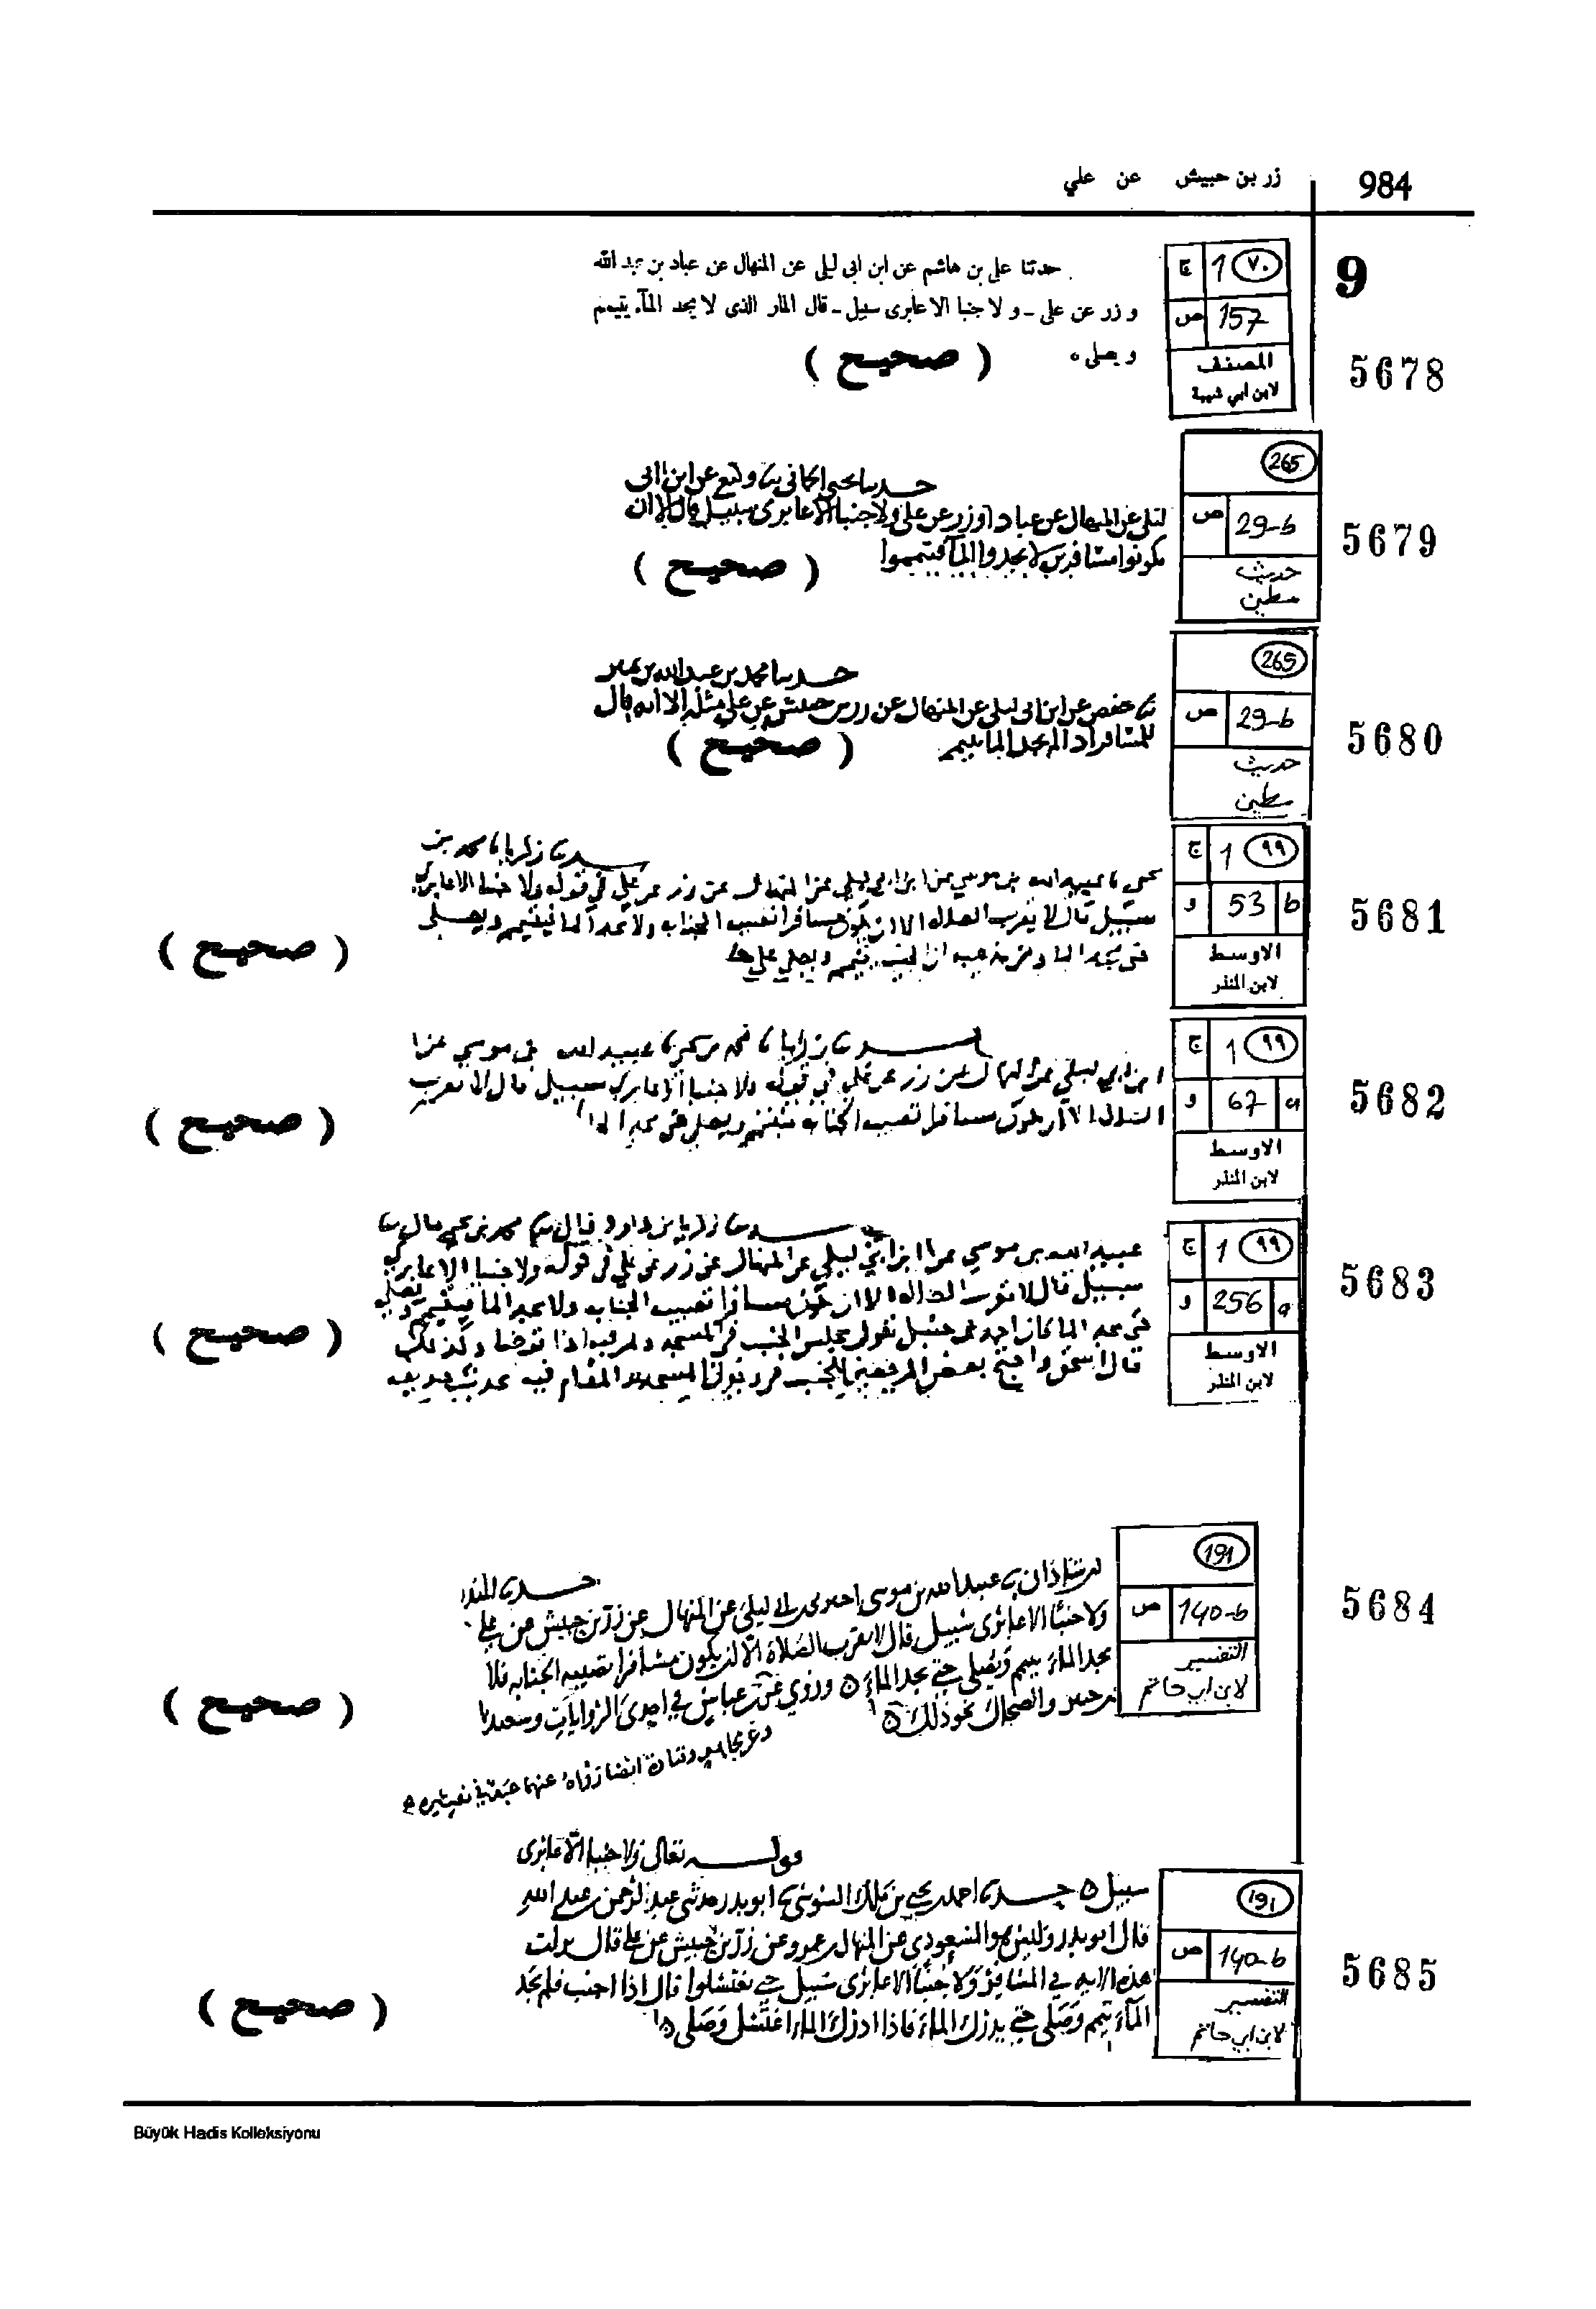 984
زر بن حبيش عن علي
9
5678
ج 1 ٧٠
ص 157
المصنف
لابن ابي شيبة
حدثنا على بن هاشم عن ابن ابى ليلى عن المنهال عن عباد بن عبد الله
و زر عن على - و لا جنبا الا عابرى سبيل - قال المار الذى لا يجد المآء يتيمم
و يصلى ٥
( صحيح )
5679
265
ص 29-b
حديث
مطين
حدثنا يحيى الحماني ثنا وكيع عن ابن ابى
ليلى عن المنهال عن عباد او زر عن على ولا جنبا الا عابرى سبيل قال الا ان
تكونوا مسافرين لا تجدوا المآ فتيمموا
( صحيح )
5680
265
ص 29-b
حديث
مطين
حدثنا محمد بن عبد الله بن نمير
ثنا حفص عن ابن ابى ليلى عن المنهال عن زر بن حبيش عن على مثله الا انه قال
للمسافر اذا لم يجد الما يتيمم
( صحيح )
5681
ج 1 ٩٩
و 53 b
الاوسط
لابن المنذر
حدثنا زكريا ثنا محمد بن
يحيى ثنا عبيد الله بن موسي عن ابن ابي ليلي عن المنهال عن زر عن علي في قوله ولا جنبا الا عابري
سبيل قال لا يقرب الصلاه الا ان يكون مسافرا تصيبه الجنابه ولا يجد الما فيتيمم ويصلي
حتى يجد الما
( صحيح )
5682
ج 1 ٩٩
و 67 a
الاوسط
لابن المنذر
حدثنا زكريا ثنا محمد بن يحيى ثنا عبيد الله بن موسي عن ا
ابن ابي ليلي عن المنهال عن زر عن علي في قوله ولا جنبا الا عابري سبيل قال لا يقرب
الصلاه الا ان يكون مسافرا تصيبه الجنابه فيتيمم ويصلي حتى يجد الما
( صحيح )
5683
ج 1 ٩٩
و 256 a
الاوسط
لابن المنذر
حدثنا زكريا بن داود قال ثنا محمد بن يحيى قال ثنا
عبيد الله بن موسي عن ابن ابي ليلي عن المنهال عن زر عن علي في قوله ولا جنبا الا عابري
سبيل قال لا يقرب الصلاه الا ان يكون مسافرا تصيبه الجنابه ولا يجد الما فيتيمم ويصلي
حتى يجد الما كان احمد بن حنبل يقول يجلس الجنب في المسجد ويمر فيه اذا توضا وكذلك
قال اسحق واحتج بعض المرخصين للجنب في دخول المسجد والمقام فيه بحديث حذيفه
( صحيح )
5684
191
ص 140-b
التفسير
لابن ابي حاتم
حدثنا المنذر
بن شاذان ثنا عبيد الله بن موسى اخبرني ابن ابي ليلى عن المنهال عن زر بن حبيش عن علي
ولا جنبًا الا عابرى سبيل قال لا يقرب الصلاة الا ان يكون مسافرا تصيبه الجنابه فلا
يجد الماء يتيمم ويصلي حتى يجد الماء ٥ وروي عن ابن عباس في احدى الروايات وسعيد
بن جبير والضحاك نحو ذلك ٥
( صحيح )
5685
191
ص 140-b
التفسير
لابن ابي حاتم
قوله تعالى ولا جنبا الا عابرى
سبيل ٥ حدثنا احمد بن يحيى بن مالك السوسي ثنا ابو بدر حدثني عبد الرحمن بن عبد الله
قال ابو بدر وليس هو المسعودي عن المنهال بن عمرو عن زر بن حبيش عن علي قال نزلت
هذه الايه في المسافر ولا جنبًا الا عابرى سبيل حتى تغتسلوا قال اذا اجنب فلم يجد
المآء تيمم وصلى حتى يدرك الماء فاذا ادرك الماء اغتسل وصلى ٥
( صحيح )
Büyük Hadis Kolleksiyonu